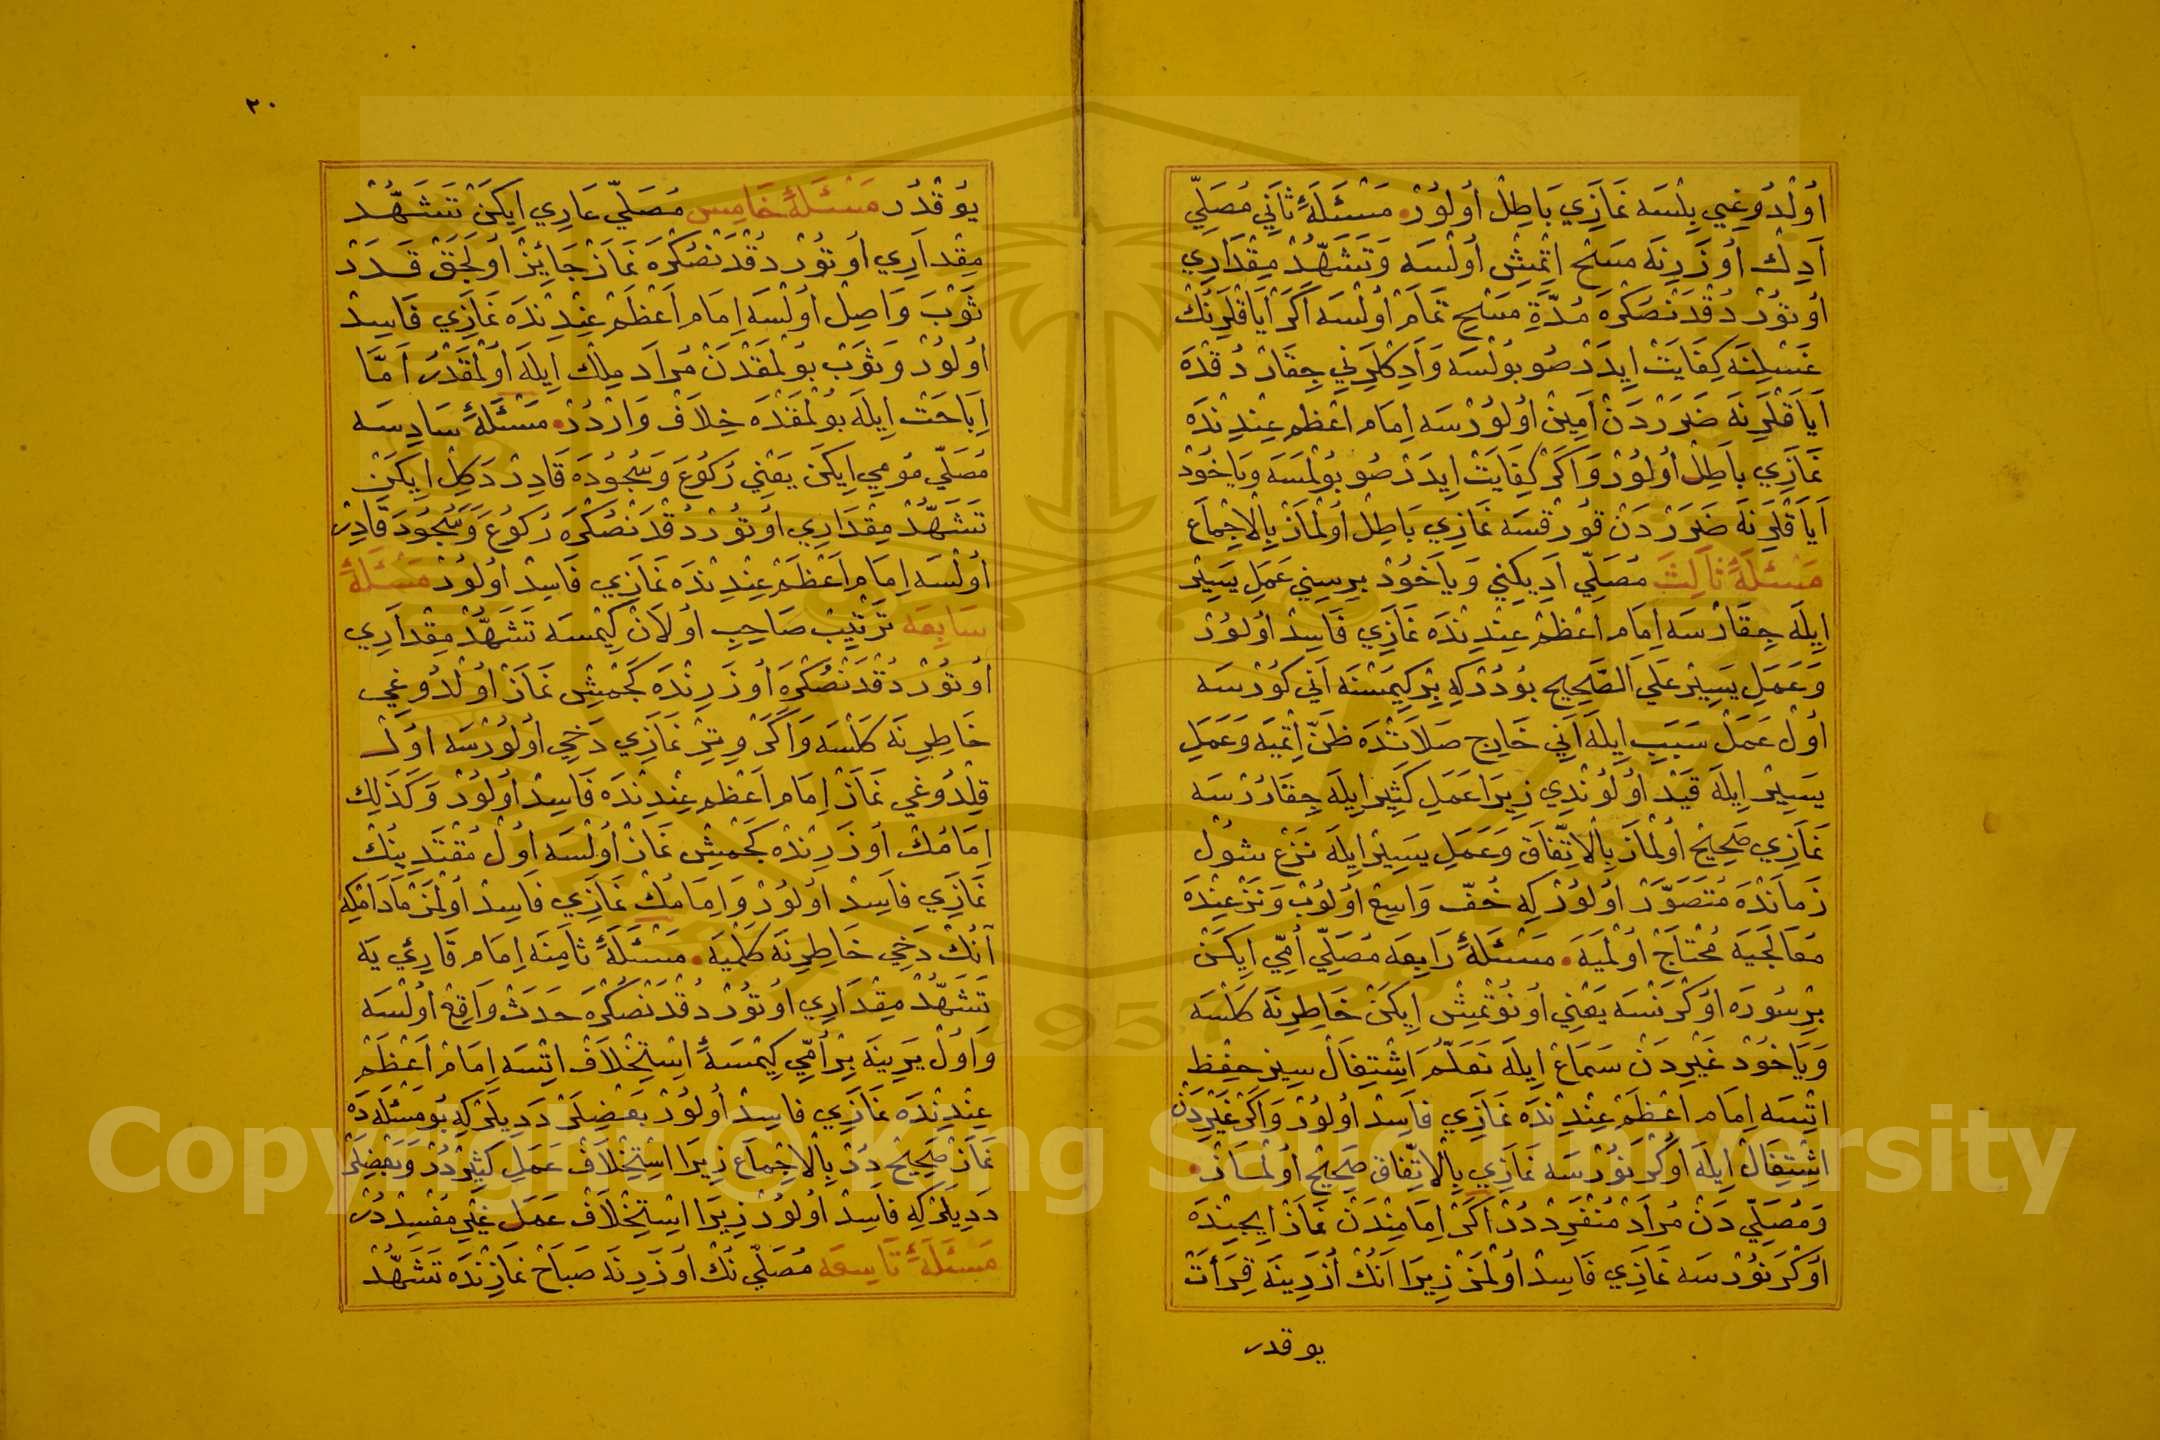 أُولْدُوغِنِي بِلْسَه نَمَازِي بَاطِلْ أُولُورْ مَسْئَلَةِ ثَانِي مُصَلِّي
اَدِكْ أُوزَرِنَه مَسْحْ اِتْمِشْ أُولْسَه وَتَشَهُّدِ مِقْدَارِي
أُوتُورْدُقْدَنْصُكْرَه مُدَّةِ مَسْحِ تَمَامْ أُولْسَه اَكَرْ اَيَاقْلَرِنُكْ
غَسْلِنَه كِفَايَتْ اِيدَرْ صُو بُولْسَه وَاَدِكْلَرِنِي چِقَارْدُقْدَه
اَيَاقْلَرِنَه ضَرَرْدَنْ اَمِينْ أُولُورْسَه اِمَامِ اَعْظَمْ عِنْدِنْدَه
نَمَازِي بَاطِلْ أُولُورْ وَاَكَرْ كِفَايَتْ اِيدَرْ صُو بُولْمَسَه وَيَاخُودْ
اَيَاقْلَرِنَه ضَرَرْدَنْ قُورْقَسَه نَمَازِي بَاطِلْ أُولْمَازْ بِالْاِجْمَاعِ
مَسْئَلَةِ ثَالِثَ مُصَلِّي اَدِيكِنِي وَيَاخُودْ بِرِيسِنِي عَمَلِ يَسِيرْ
اِيلَه چِقَارْسَه اِمَامِ اَعْظَمْ عِنْدِنْدَه نَمَازِي فَاسِدْ أُولُورْ
وَعَمَلِ يَسِيرْ عَلَى الصَّحِيحِ بُودُرْكِه بِرْكِيمَسْنَه اَنِي كُورْسَه
أُولْ عَمَلْ سَبَبِ اِيلَه اَنِي خَارِجِ صَلَاتْدَه ظَنْ اِتْمَيَه وَعَمَلِ
يَسِيرْ اِيلَه قَيْدْ أُولُونْدِي زِيرَا عَمَلِ كَثِيرْ اِيلَه چِقَارُرْسَه
نَمَازِي صَحِيحْ أُولْمَازْ بِالْاِتِّفَاقِ وَعَمَلِ يَسِيرْ اِيلَه نَزْعْ شُولْ
زَمَانْدَه مُتَصَوَّرْ أُولُورْكِه خُفّ وَاسِعْ أُولُوبْ وَنَزْعِنْدَه
مُعَالَجَيَه مُحْتَاجْ أُولْمَيَه مَسْئَلَةِ رَابِعَه مُصَلِّي أُمِّي اِيكَنْ
بِرْسُورَه أُوكْرَنْسَه يَعْنِي أُونُوتْمِشْ اِيكَنْ خَاطِرِنَه كَلْسَه
وَيَاخُودْ غَيْرِدَنْ سَمَاعْ اِيلَه تَعَلُّمَ اِشْتِغَالْسِيزْ حِفْظِ
اِتْسَه اِمَامِ اَعْظَمْ عِنْدِنْدَه نَمَازِي فَاسِدْ أُولُورْ وَاَكَرْ غَيْرِدَنْ
اِشْتِغَالْ اِيلَه أُوكْرَنُورْسَه نَمَازِي بِالْاِتِّفَاقِ صَحِيحْ أُولْمَازْ
وَمُصَلِّي دَنْ مُرَادْ مُنْفَرِدْدُرْ اَكَرْ اِمَامِنْدَنْ نَمَازْ اِيچِنْدَه
أُوكْرَنُورْسَه نَمَازِي فَاسِدْ أُولْمَزْ زِيرَا اَنُكْ أُزَرِينَه قِرَأَتْ
يوقدر
٣٠
يُوقْدُرْ مَسْئَلَةِ خَامِس مُصَلِّي عَارِي اِيكَنْ تَشَهُّدْ
مِقْدَارِي أُوتُورْدُقْدَنْصُكْرَه نَمَازْ جَائِزْ أُولَجَقْ قَدَرْ
ثَوْبَ وَاصِلْ أُولْسَه اِمَامِ اَعْظَمْ عِنْدِنْدَه نَمَازِي فَاسِدْ
أُولُورْ وَثَوْبْ بُولْمَقْدَنْ مُرَادْ مِلْكْ اِيلَه أُولْمَقْدُرْ اَمَّا
اِبَاحَتْ اِيلَه بُولْمَقْدَه خِلَافْ وَارْدُرْ مَسْئَلَةِ سَادِسَه
مُصَلِّي مُومِي اِيكَنْ يَعْنِي رُكُوعَ وَسُجُودَه قَادِرْ دَكِلْ اِيكَنْ
تَشَهُّدْ مِقْدَارِي أُوتُورْدُقْدَنْصُكْرَه رُكُوعَ وَسُجُودَ قَادِرْ
أُولْسَه اِمَامِ اَعْظَمْ عِنْدِنْدَه نَمَازِي فَاسِدْ أُولُورْ مَسْئَلَةِ
سَابِعَه تَرْتِيبْ صَاحِبِ أُولَانْ كِيمَسَه تَشَهُّدْ مِقْدَارِي
أُوتُورْدُقْدَنْصُكْرَه أُوزَرِنْدَه كَچْمِشْ نَمَازْ أُولْدُوغِي
خَاطِرِنَه كَلْسَه وَاَكَرْ وِتِرْ نَمَازِي دَخِي أُولُورْسَه أُولْ
قِلْدُوغِي نَمَازْ اِمَامِ اَعْظَمْ عِنْدِنْدَه فَاسِدْ أُولُورْ وَكَذَلِكَ
اِمَامُكْ أُوزَرِنْدَه كَچْمِشْ نَمَازْ أُولْسَه أُولْ مُقْتَدِينُكْ
نَمَازِي فَاسِدْ أُولُورْ وَاِمَامُكْ نَمَازِي فَاسِدْ أُولْمَزْ مَادَامْكِه
اَنُكْ دَخِي خَاطِرِنَه كَلْمَيَه مَسْئَلَةِ ثَامِنَه اِمَامِ قَارِئِ يَه
تَشَهُّدْ مِقْدَارِي أُوتُورْدُقْدَنْصُكْرَه حَدَثْ وَاقِعْ أُولْسَه
وَأُولْ يَرِينَه بِرْ أُمِّي كِيمْسَه اِسْتِخْلَافْ اِتْسَه اِمَامِ اَعْظَمْ
عِنْدِنْدَه نَمَازِي فَاسِدْ أُولُورْ بَعْضِلَرْ دَدِيلَرْكِه بُو مَسْئَلَه دَه
نَمَازْ صَحِيحْ دُرْ بِالْاِجْمَاعِ زِيرَا اِسْتِخْلَافْ عَمَلِ كَثِيرْدُرْ وَبَعْضِلَرْ
دَدِيلَرْكِه فَاسِدْ أُولُورْ زِيرَا اِسْتِخْلَافْ عَمَلِ غَيْرِ مُفْسِدْ دُرْ
مَسْئَلَةِ تَاسِعَه مُصَلِّي نُكْ أُوزَرِنَه صَبَاحْ نَمَازِنْدَه تَشَهُّدْ
Copyright © King Saud University
1957